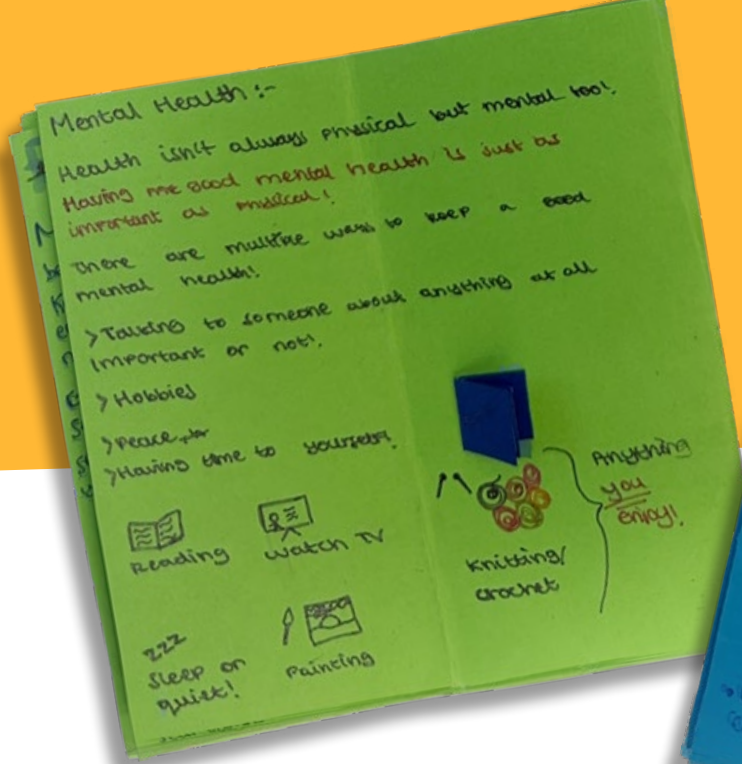 Mental Health :-
Health isn't always physical but mental too!.
Having good mental health is just as
important as physical!
There are multiple ways to keep a good
mental health!.
> Talking to someone about anything at all
important or not!.
> Hobbies
> Peace
> Having time to yourself!.
Reading
Watch TV
zzz
Sleep or
quiet!
Painting
Knitting/
crochet
Anything
you
enjoy!